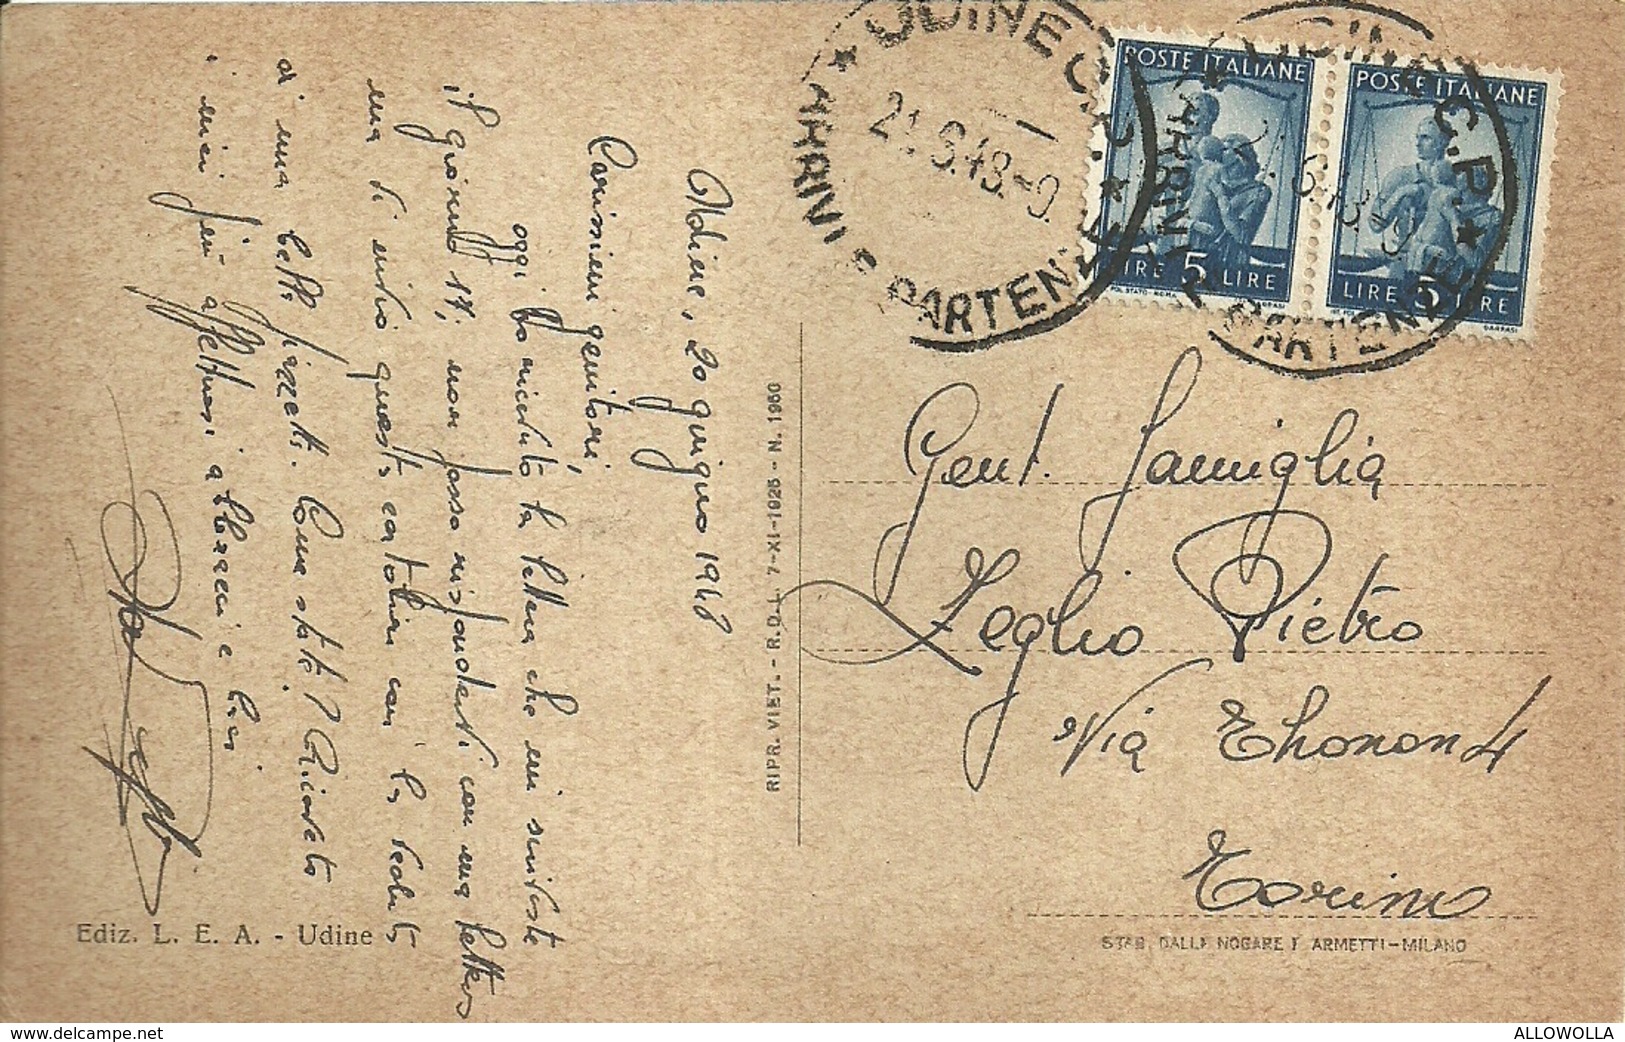 Udine, 20 giugno 1948
Carissimi genitori,
oggi ho ricevuto la lettera che mi inviaste
il giorno 17, non posso rispondervi con una lettera
ma vi invio questa cartolina con la veduta
di una bella piazzetta. Come state? Ricevete
i miei più affettuosi abbracci e baci
Ediz. L. E. A. - Udine
RIPR. VIET. - R.D.L. 7-XI-1925 - N. 1950
UDINE C.P.
ARRIVI E PARTENZE
21.6.48.-9
POSTE ITALIANE
LIRE 5 LIRE
UDINE C.P.
ARRIVI E PARTENZE
21.6.48-9
POSTE ITALIANE
LIRE 5 LIRE
Gent. Famiglia
Zeglio Pietro
Via Thonon 4
Torino
STAB. DALLE NOGARE E ARMETTI-MILANO
www.delcampe.net
ALLOWOLLA